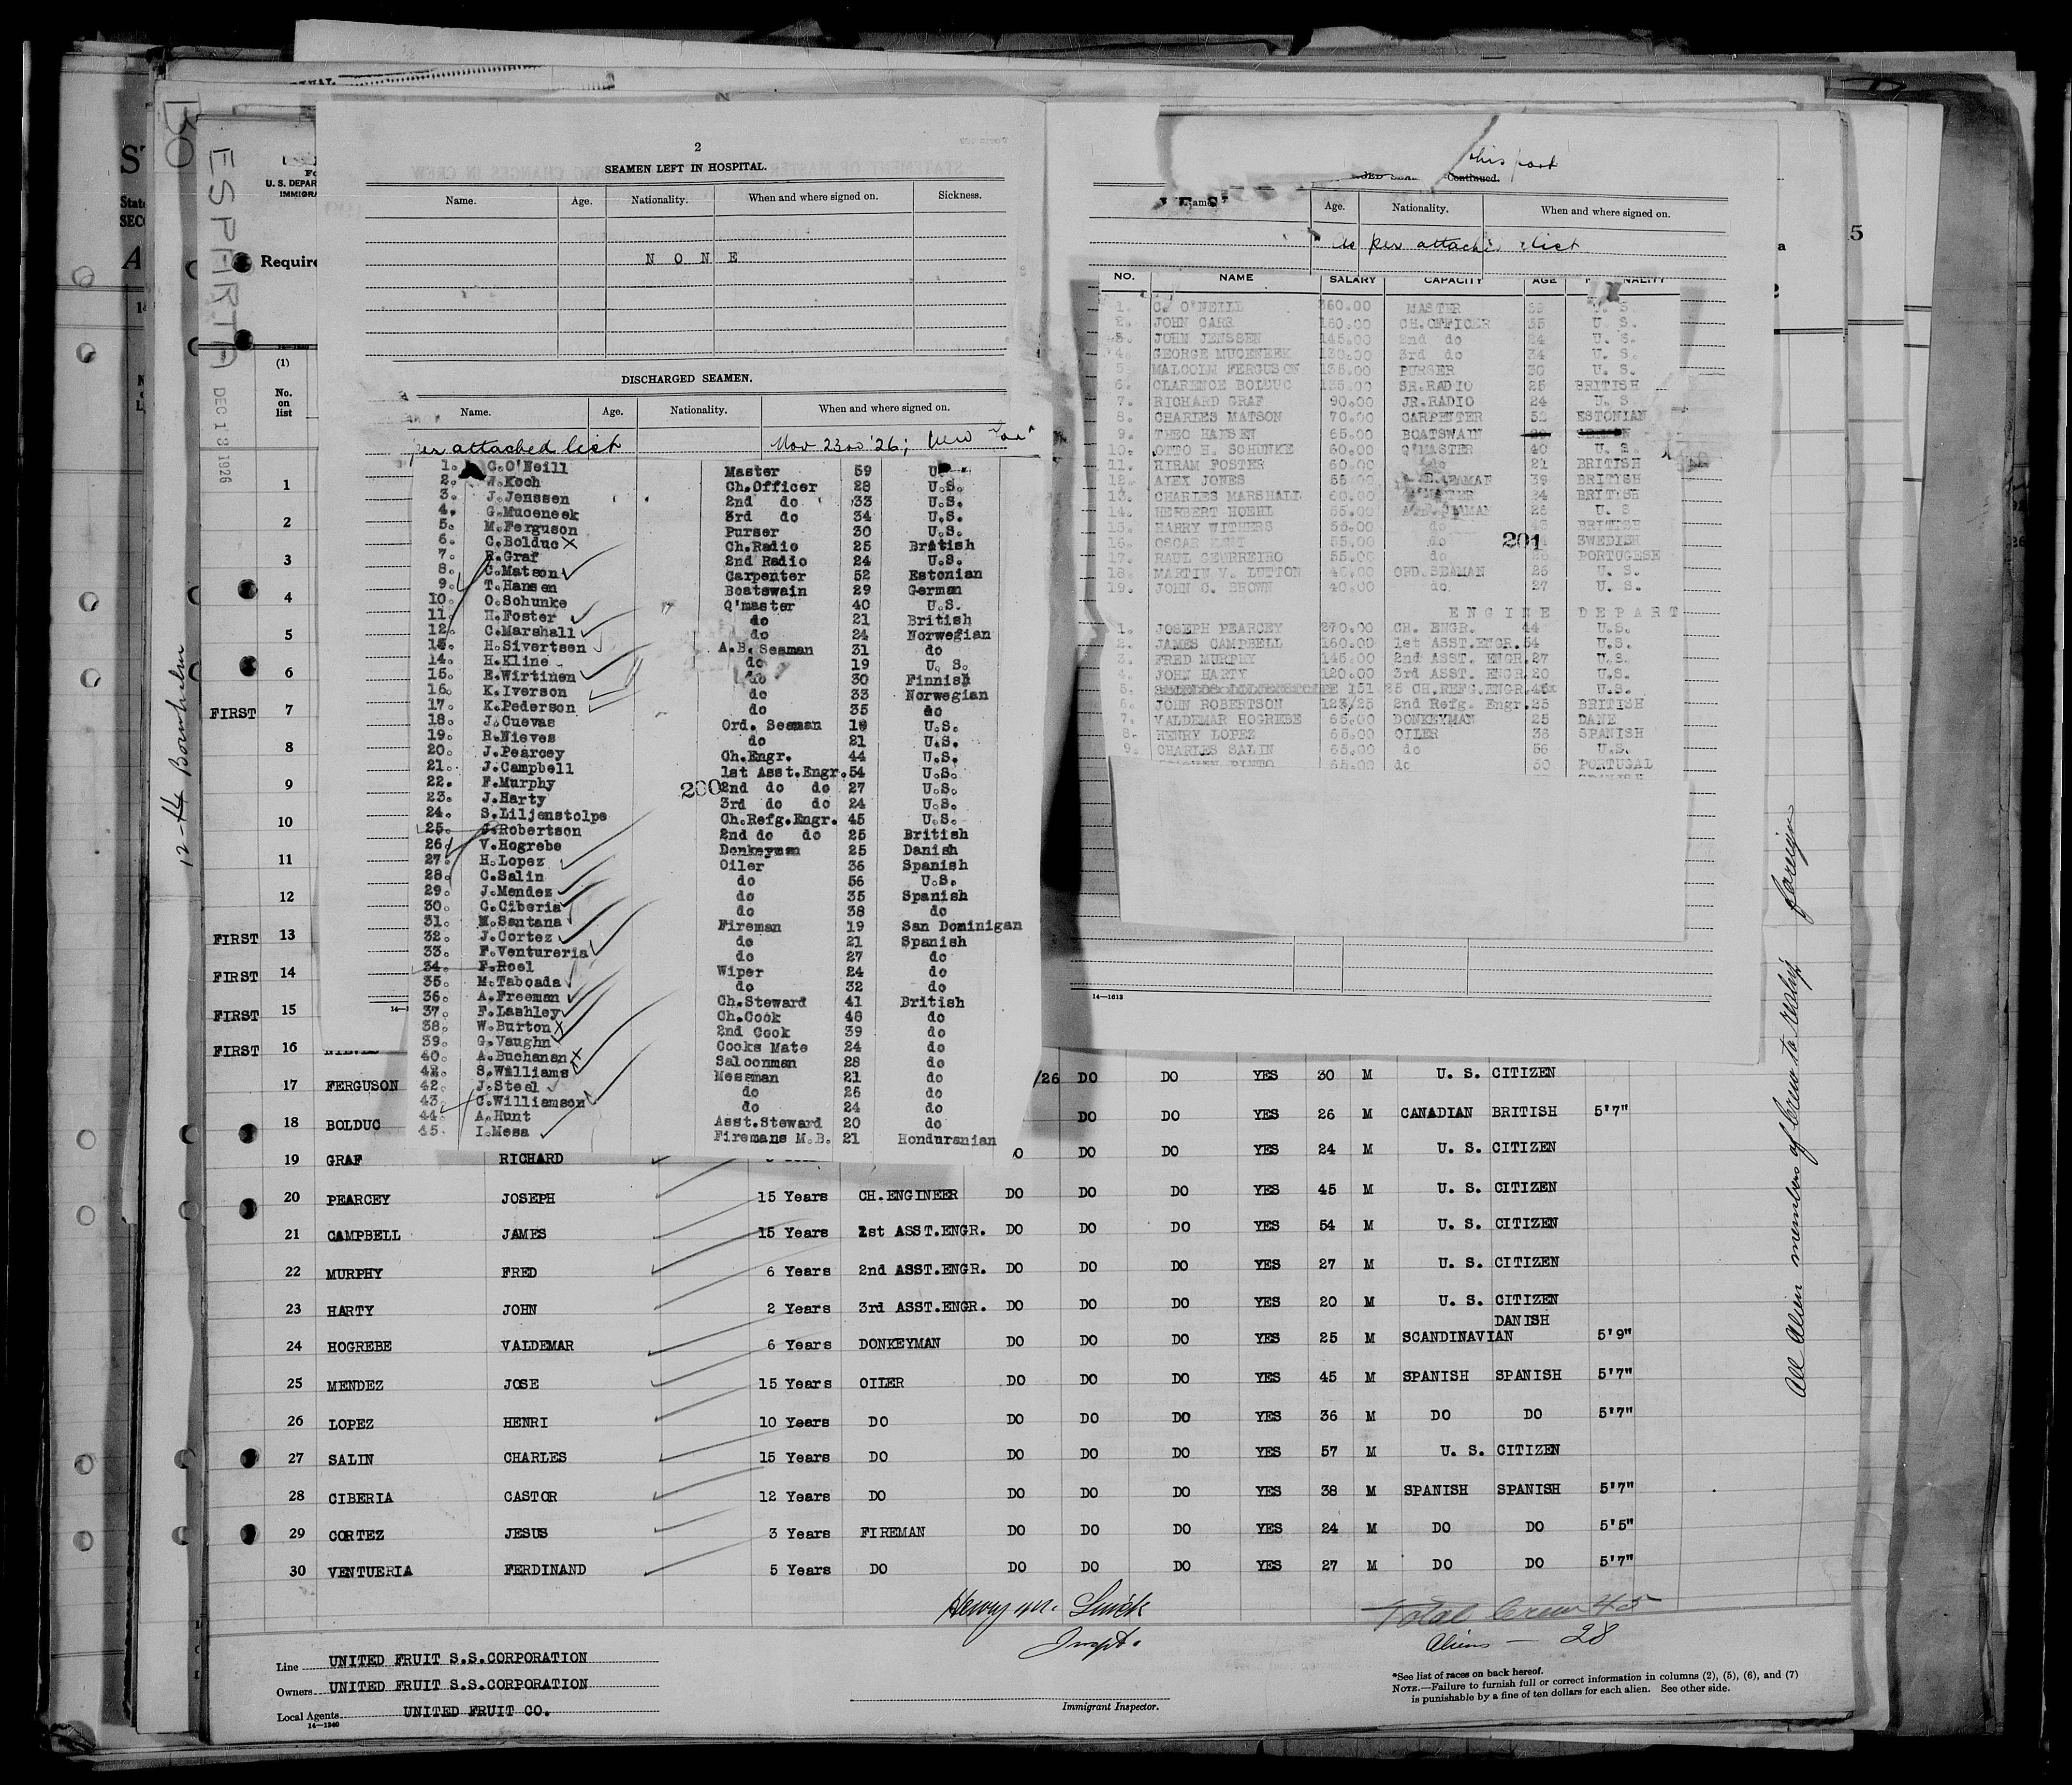 2
SEAMEN LEFT IN HOSPITAL.
Name. Age. Nationality. When and where signed on. Sickness.
N O N E
DISCHARGED SEAMEN.
Name. Age. Nationality. When and where signed on.
per attached list Nov 23rd '26; New
1. C.O'Neill Master 59 U.
2. Koch Ch.Officer 28 U.S.
3. J.Jenssen 2nd do 33 U.S.
4. G.Muceneek 3rd do 34 U.S.
5. M.Ferguson Purser 30 U.S.
6. C.Bolduc X Ch.Radio 25 British
7. R.Graf 2nd Radio 24 U.S.
8. C.Matson Carpenter 52 Estonian
9. T.Hansen Boatswain 29 German
10. O.Schunke Q'master 40 U.S.
11. H.Foster do 21 British
12. C.Marshall do 24 Norwegian
13. H.Sivertsen A.B. Seaman 31 do
14. H.Kline do 19 U. S.
15. E.Wirtinen do 30 Finnish
16. K.Iverson do 33 Norwegian
17. K.Pederson do 35 do
18. J.Cuevas Ord. Seaman U.S.
19. R.Nieves do 21 U.S.
20. J.Pearcey Ch.Engr. 44 U.S.
21. J.Campbell 1st Asst.Engr. 54 U.S.
22. F.Murphy 2nd do do 27 U.S.
23. J.Harty 3rd do do 24 U.S.
24. S.Liljenstolpe Ch.Refg.Engr. 45 U.S.
25. J.Robertson 2nd do do 25 British
26. V.Hogrebe Donkeyman 25 Danish
27. H.Lopez Oiler 36 Spanish
28. C.Salin do 56 U.S.
29. J.Mendez do 35 Spanish
30. C.Ciberia do 38 do
31. M.Santana Fireman 19 San Dominigan
32. J.Cortez do 21 Spanish
33. F.Ventureria do 27 do
34. F.Roel Wiper 24 do
35. M.Taboada do 32 do
36. A.Freeman Ch.Steward 41 British
37. F.Lashley Ch.Cook 48 do
38. W.Burton X 2nd Cook 39 do
39. G.Vaughn Cooks Mate 24 do
40. A.Buchanan X Saloonman 28 do
42. S.Williams Messman 21 do
42. J.Steel do 25 do
43. C.Williamson do 24 do
44. A.Hunt Asst.Steward 20 do
45. I.Mesa Firemans M.B. 21 Honduranian
200
this port
Continued.
Name Age. Nationality. When and where signed on.
As per attached list
NO. NAME SALARY CAPACITY AGE
1. C. O'NEILL 360.00 MASTER 59 U. S.
2. JOHN CARR 180.00 CH.OFFICER 35 U. S.
3. JOHN JENSSEN 145.00 2nd do 24 U. S.
4. GEORGE MUCENEEK 130.00 3rd do 34 U. S.
5. MALCOLM FERGUSON 135.00 PURSER 30 U. S.
6. CLARENCE BOLDUC SR.RADIO 25 BRITISH
7. RICHARD GRAF 90.00 JR.RADIO 24 U. S.
8. CHARLES MATSON 70.00 CARPENTER 52 ESTONIAN
9. THEO HANSEN 65.00 BOATSWAIN
10. OTTO H. SCHUNKE 60.00 Q'MASTER 40 U. S.
11. HIRAM FOSTER 60.00 do 21 BRITISH
12. ALEX JONES 55.00 SEAMAN 39 BRITISH
13. CHARLES MARSHALL 60.00 24 BRITISH
14. HERBERT HOEHL 55.00 A.B. SEAMAN 25 U. S
15. HARRY WITHERS 55.00 do 43 BRITISH
16. OSCAR 55.00 do SWEDISH
201
17. RAUL GEURREIRO 55.00 do 26 PORTUGESE
18. MARTIN V. LUTTON 40.00 ORD.SEAMAN 26 U. S.
19. JOHN C. BROWN 40.00 do 27 U. S.
ENGINE DEPART
1. JOSEPH PEARCEY 270.00 CH. ENGR. 44 U.S.
2. JAMES CAMPBELL 160.00 1st ASST.ENGR. 54 U.S.
3. FRED MURPHY 145.00 2nd ASST. ENGR. 27 U.S.
4. JOHN HARTY 120.00 3rd ASST. ENGR. 20 U.S.
5. 151 CH.REFG.ENGR. U.S.
6. JOHN ROBERTSON 123/25 2nd Refg. Engr. 25 BRITISH
7. VALDEMAR HOGREBE 65.00 DONKEYMAN 25 DANE
8. HENRY LOPEZ 65.00 OILER 36 SPANISH
9. CHARLES SALIN 65.00 do 56 U.S.
65.00 do 50 PORTUGAL
14—1613
ESPARTA DEC 13 1926
12-14 Bornholm
U. S. DEPAR
IMMIGRA
Require
(1)
No.
on
list
1
2
3
4
5
6
FIRST 7
8
9
10
11
12
FIRST 13
FIRST 14
FIRST 15
FIRST 16
17 FERGUSON /26 DO DO YES 30 M U. S. CITIZEN
18 BOLDUC DO DO YES 26 M CANADIAN BRITISH 5'7"
19 GRAF RICHARD DO DO YES 24 M U. S. CITIZEN
20 PEARCEY JOSEPH 15 Years CH.ENGINEER DO DO DO YES 45 M U. S. CITIZEN
21 CAMPBELL JAMES 15 Years 1st ASST.ENGR. DO DO DO YES 54 M U. S. CITIZEN
22 MURPHY FRED 6 Years 2nd ASST.ENGR. DO DO DO YES 27 M U. S. CITIZEN
23 HARTY JOHN 2 Years 3rd ASST.ENGR. DO DO DO YES 20 M U. S. CITIZEN
24 HOGREBE VALDEMAR 6 Years DONKEYMAN DO DO DO YES 25 M SCANDINAVIAN DANISH 5'9"
25 MENDEZ JOSE 15 Years OILER DO DO DO YES 45 M SPANISH SPANISH 5'7"
26 LOPEZ HENRI 10 Years DO DO DO DO YES 36 M DO DO 5'7"
27 SALIN CHARLES 15 Years DO DO DO DO YES 57 M U. S. CITIZEN
28 CIBERIA CASTOR 12 Years DO DO DO DO YES 38 M SPANISH SPANISH 5'7"
29 CORTEZ JESUS 3 Years FIREMAN DO DO DO YES 24 M DO DO 5'5"
30 VENTUERIA FERDINAND 5 Years DO DO DO DO YES 27 M DO DO 5'7"
All Alien members of crew to reship foreign
Total Crew 45
Aliens — 28
Inspt.
Line UNITED FRUIT S.S.CORPORATION
Owners UNITED FRUIT S.S.CORPORATION
Local Agents UNITED FRUIT CO.
14—1240
Immigrant Inspector.
*See list of races on back hereof.
NOTE.—Failure to furnish full or correct information in columns (2), (5), (6), and (7)
is punishable by a fine of ten dollars for each alien. See other side.